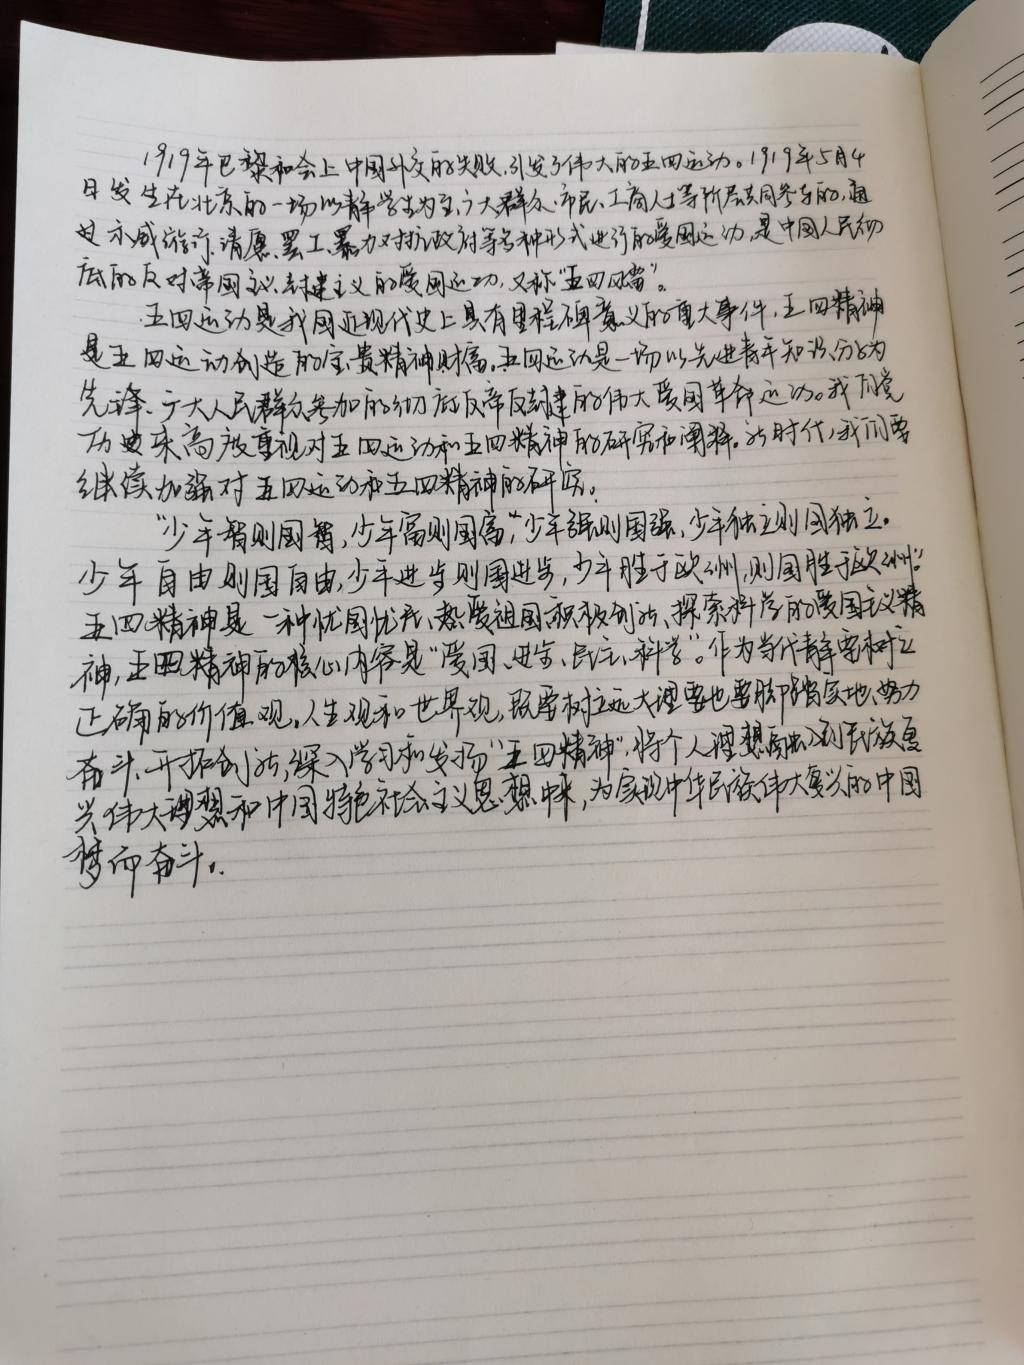 1919年巴黎和会上中国外交的失败,引发了伟大的五四运动。1919年5月4
日发生在北京的一场以青年学生为主,广大群众、市民、工商人士等阶层共同参与的,通
过示威游行、请愿、罢工、暴力对抗政府等多种形式进行的爱国运动,是中国人民彻
底的反对帝国主义、封建主义的爱国运动,又称“五四风雷”。
五四运动是我国近现代史上具有里程碑意义的重大事件,五四精神
是五四运动创造的宝贵精神财富。五四运动是一场以先进青年知识分子为
先锋、广大人民群众参加的彻底反帝反封建的伟大爱国革命运动。我们党
历史来高度重视对五四运动和五四精神的研究和阐释。新时代,我们要
继续加强对五四运动和五四精神的研究。
“少年智则国智,少年富则国富,少年强则国强,少年独立则国独立。
少年自由则国自由,少年进步则国进步,少年胜于欧洲,则国胜于欧洲”
五四精神是一种忧国忧民、热爱祖国、积极创新、探索科学的爱国主义精
神,五四精神的核心内容是“爱国、进步、民主、科学”。作为当代青年要树立
正确的价值观。人生观和世界观,既要树立远大理要也要脚踏实地、努力
奋斗、开拓创新,深入学习和发扬“五四精神”,将个人理想融入到民族复
兴伟大理想和中国特色社会主义思想中来,为实现中华民族伟大复兴的中国
梦而奋斗。